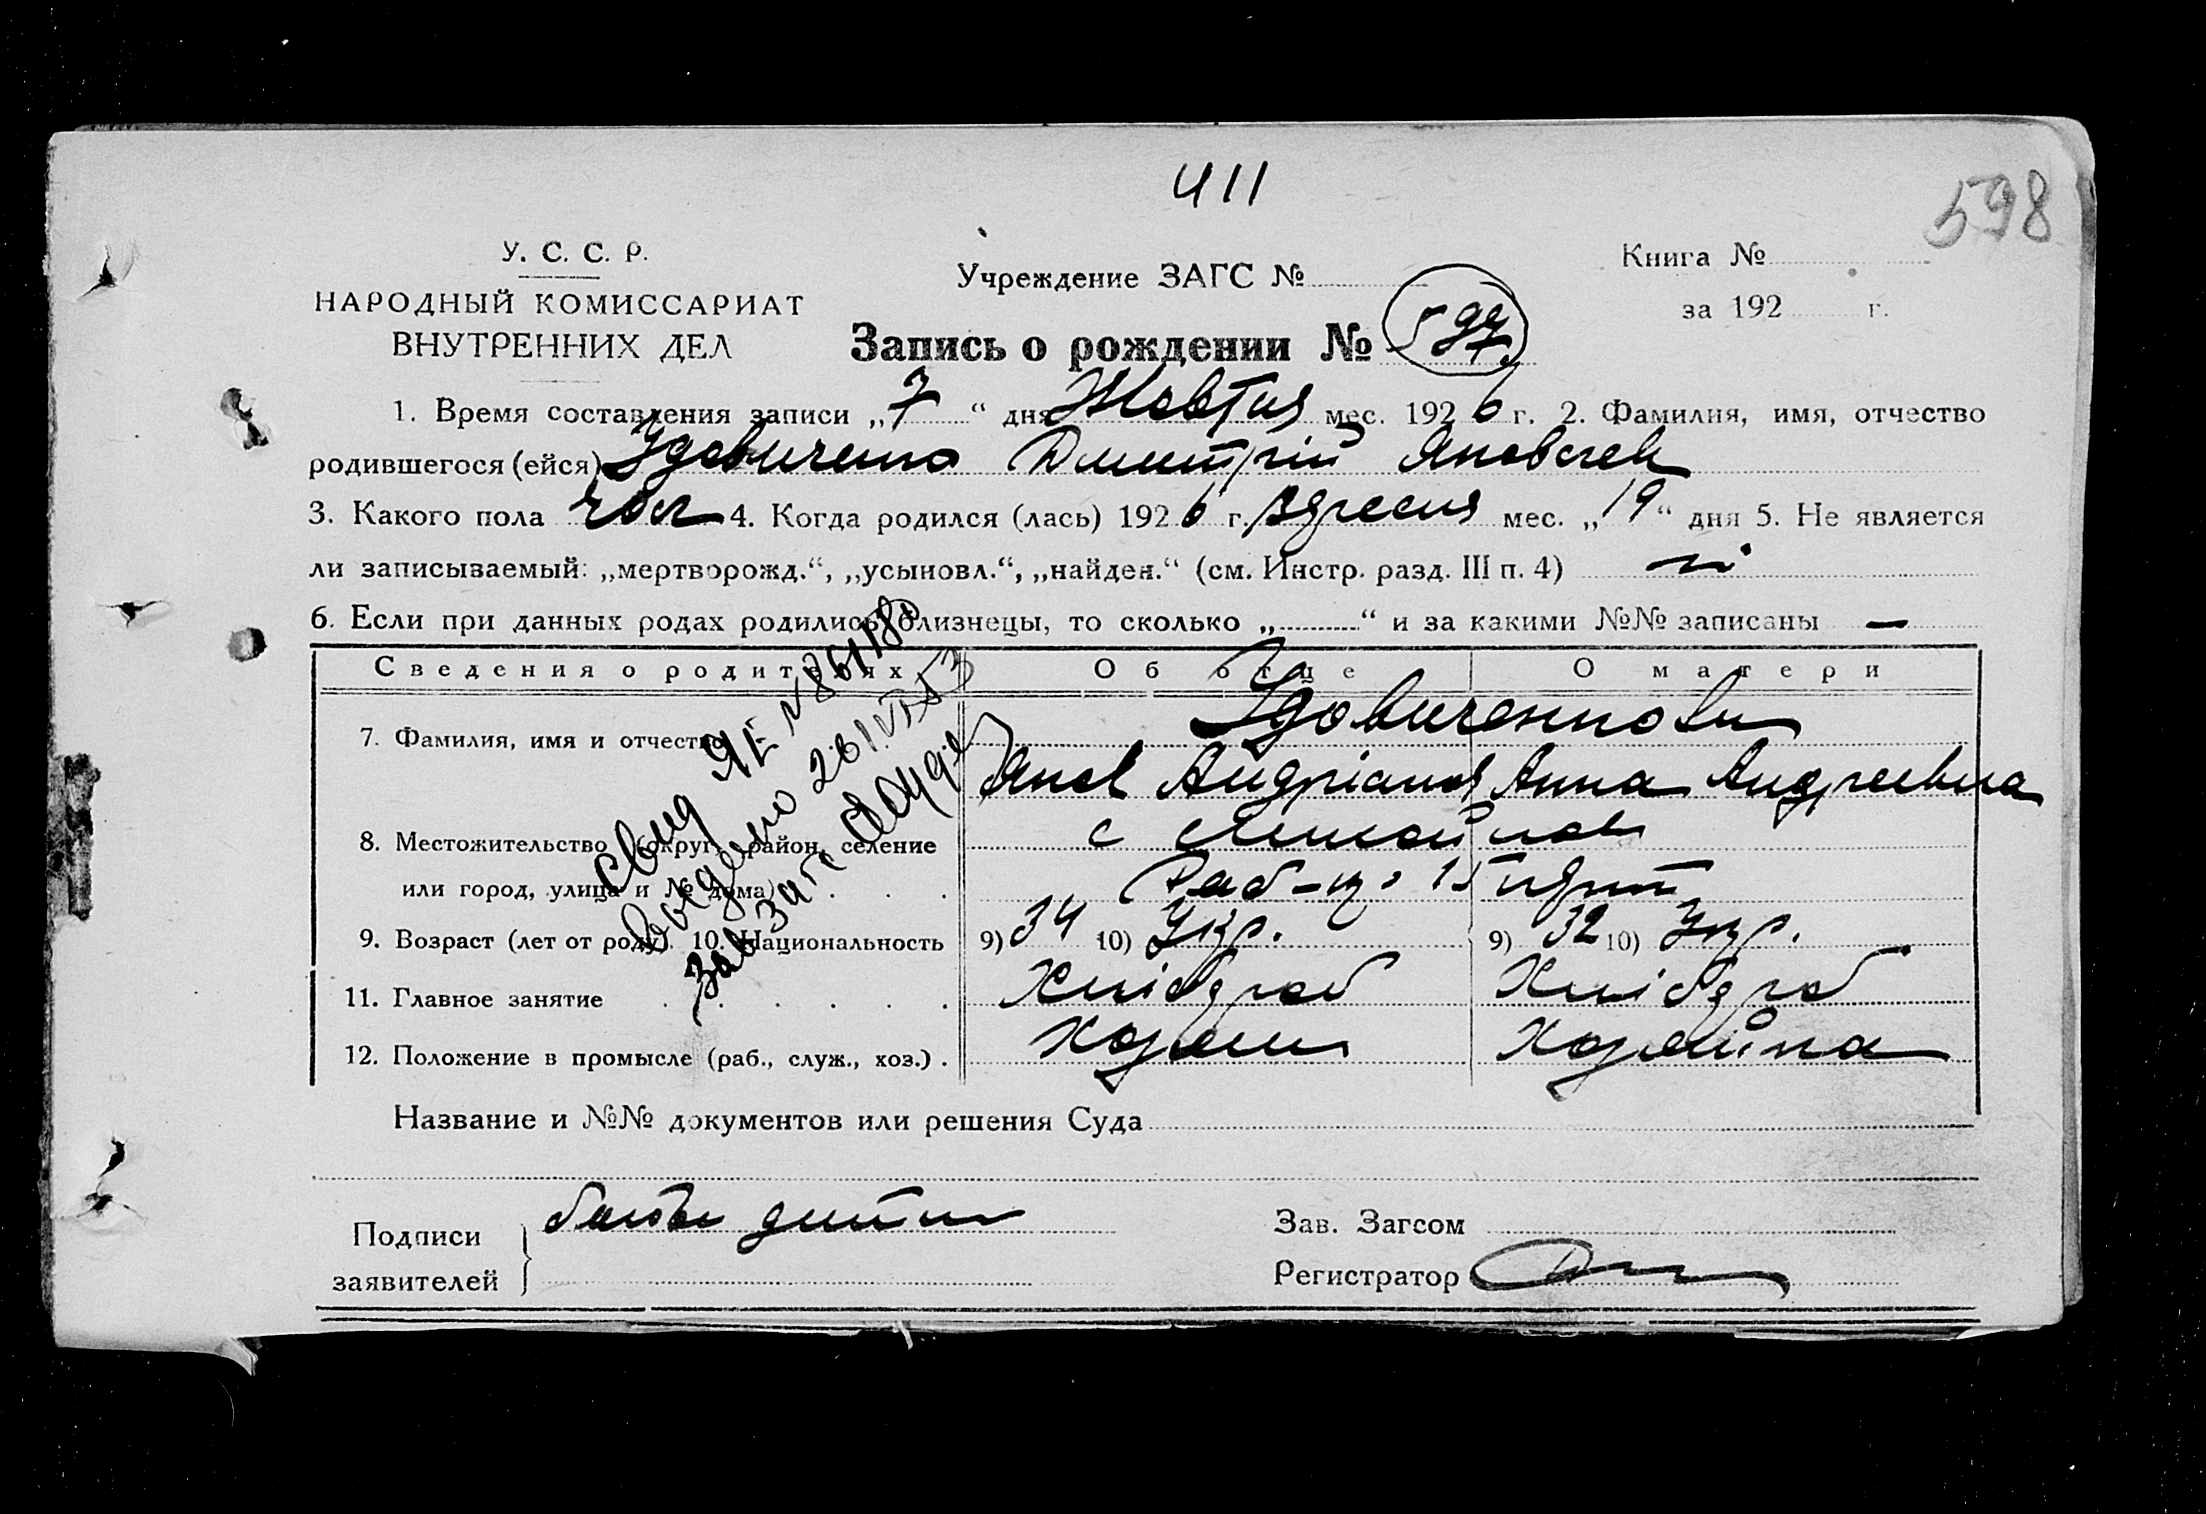 411
598
У. С. С. Р.
НАРОДНЫЙ КОМИССАРИАТ
ВНУТРЕННИХ ДЕЛ
Учреждение ЗАГС №
Книга №
за 192 г.
Запись о рождении № 597
1. Время составления записи „7“ дня Жовтня мес. 1926 г. 2. Фамилия, имя, отчество
родившегося (ейся) Удовиченко Дмитрій Яковлев
3. Какого пола чол 4. Когда родился (лась) 1926 г. Вересня мес. „19“ дня 5. Не является
ли записываемый: „мертворожд.“, „усыновл.“, „найден.“ (см. Инстр. разд. III п. 4) ні
6. Если при данных родах родились близнецы, то сколько „ “ и за какими №№ записаны —
Сведения о родителях Об отце О матери
7. Фамилия, имя и отчество Удовиченкови
Яков Андріанов Анна Андреевна
8. Местожительство (округ, район, селение с
или город, улица и № дома)
9. Возраст (лет от роду). 10. Национальность 9) 34 10) Укр. 9) 32 10) Укр.
11. Главное занятие Хлібороб Хлібороб
12. Положение в промысле (раб., служ., хоз.) . Хозяин Хозяйка
Свид ЯЕ №
Выдано
Зав Загс
Название и №№ документов или решения Суда
Подписи
заявителей
батько дитини
Зав. Загсом
Регистратор